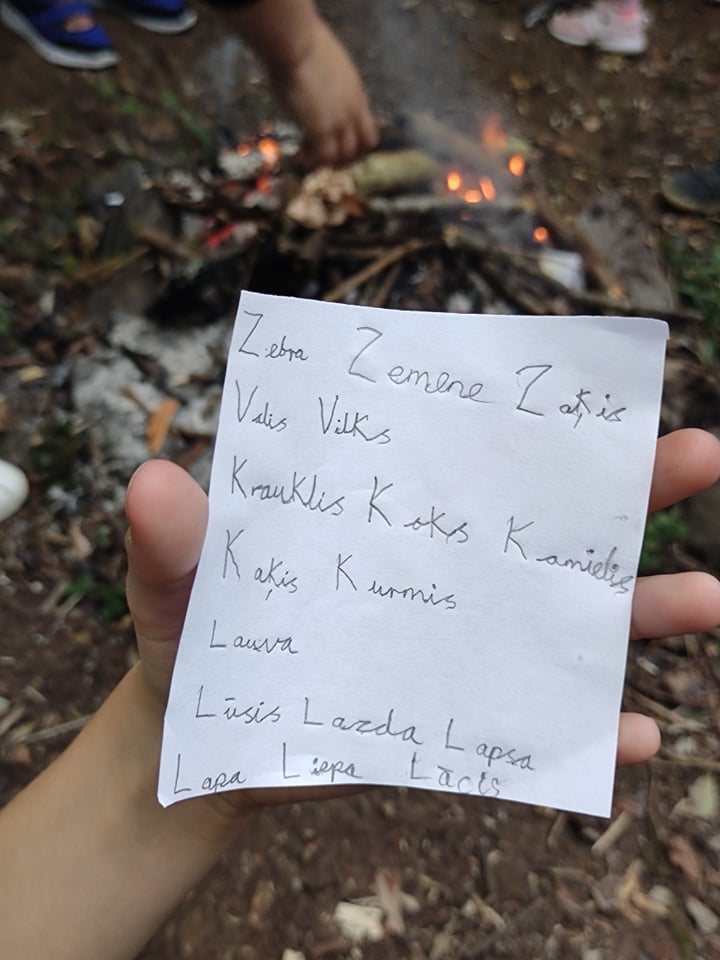 Zebra Zemene Zaķis
Valis Vilks
Krauklis Koks Kamielis
Kaķis Kurmis
Lauva
Lūsis Lazda Lapsa
Lapa Liepa Lācis